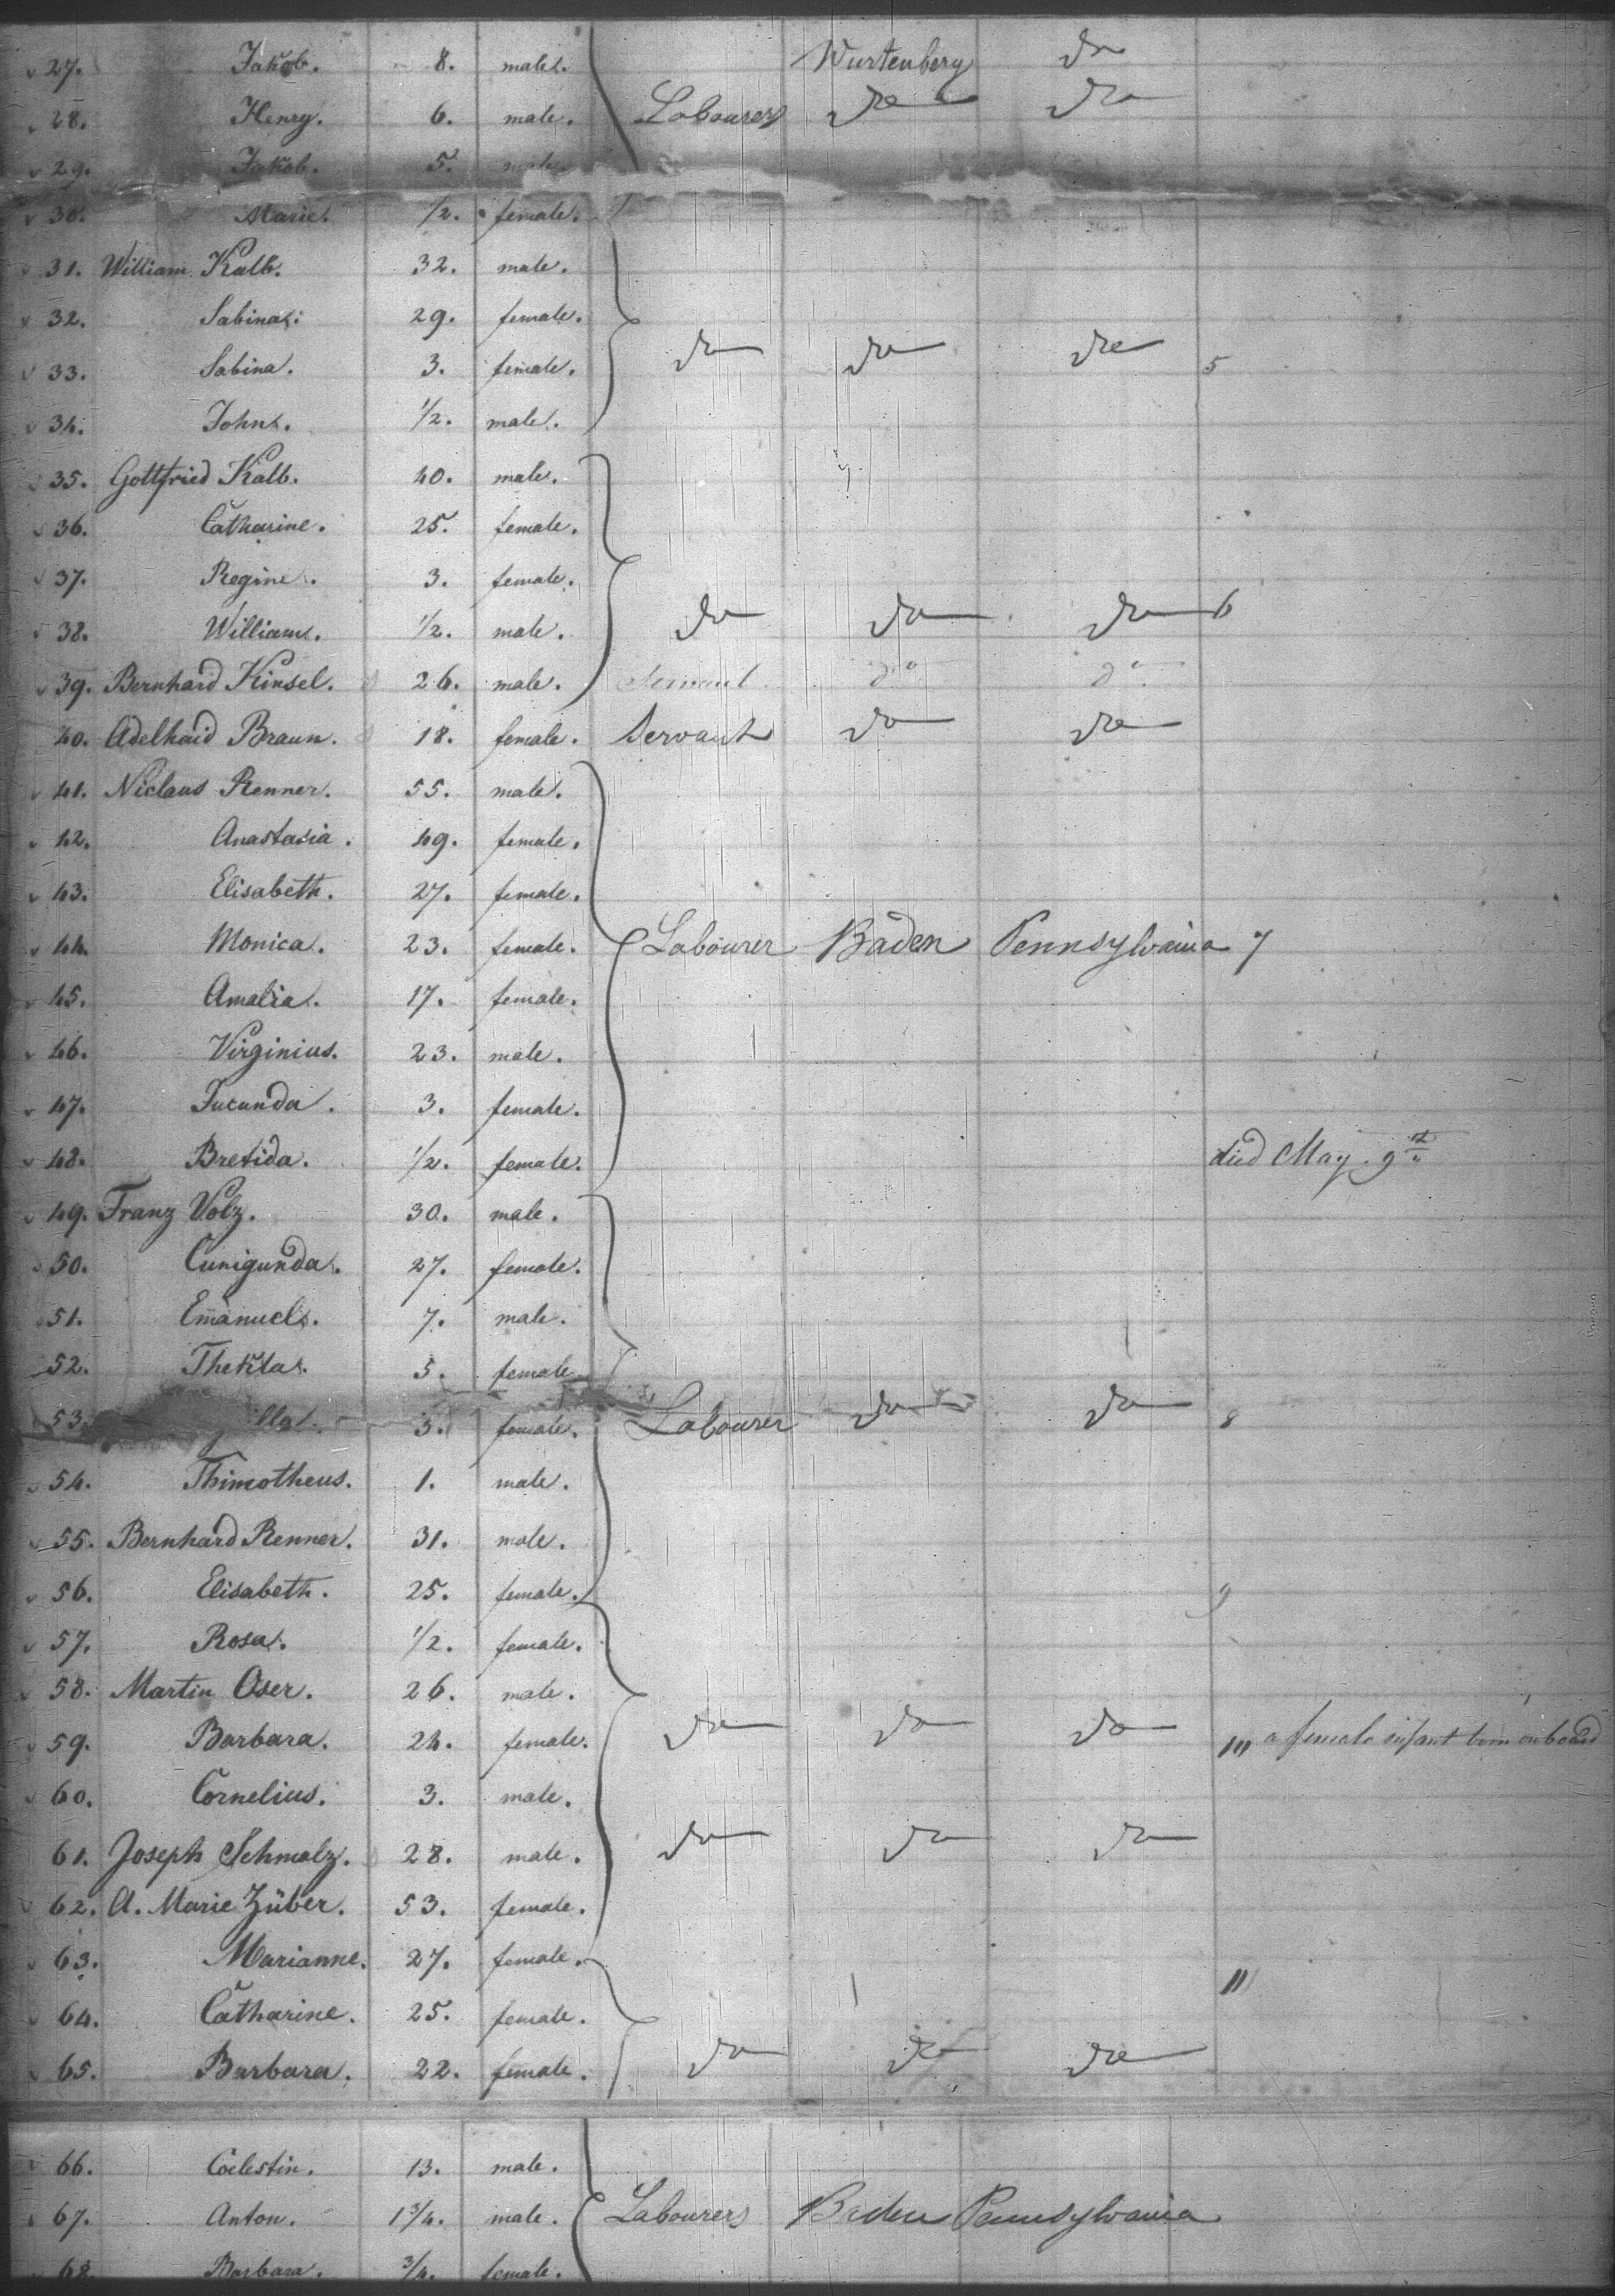 27. Jakob. 8. male. Wurtenberg do
28. Henry. 6. male. Labourers do do
29. Jakob. 5. male.
30. Marie. 1/2. female.
31. William Kalb. 32. male.
32. Sabina. 29. female.
33. Sabina. 3. female. do do do 5
34. John. 1/2. male.
35. Gottfried Kalb. 40. male.
36. Catharine. 25. female.
37. Regine. 3. female.
38. William. 1/2. male. do do do 6
39. Bernhard Kinsel. 26. male. Servant do do
40. Adelhaid Braun. 18. female. Servant do do
41. Niclaus Renner. 55. male.
42. Anastasia. 49. female.
43. Elisabeth. 27. female.
44. Monica. 23. female. Labourer Baden Pennsylvania 7
45. Amalia. 17. female.
46. Virginius. 23. male.
47. Jucunda. 3. female.
48. Bretida. 1/2. female. died May 9th
49. Franz Volz. 30. male.
50. Cunigunda. 27. female.
51. Emanuel. 7. male.
52. Thekla. 5. female
53. 3. female. Labourer do do 8
54. Thimotheus. 1. male.
55. Bernhard Renner. 31. male.
56. Elisabeth. 25. female. 9
57. Rosa. 1/2. female.
58. Martin Oser. 26. male.
59. Barbara. 24. female. do do do a female infant born on board
60. Cornelius. 3. male.
61. Joseph Schmalz. 28. male. do do do
62. A. Marie Züber. 53. female.
63. Marianne. 27. female.
64. Catharine. 25. female.
65. Barbara. 22. female. do do do
66. Coelestin. 13. male.
67. Anton. 1 3/4. male. Labourers Baden Pennsylvania
68. Barbara. 3/4. female.